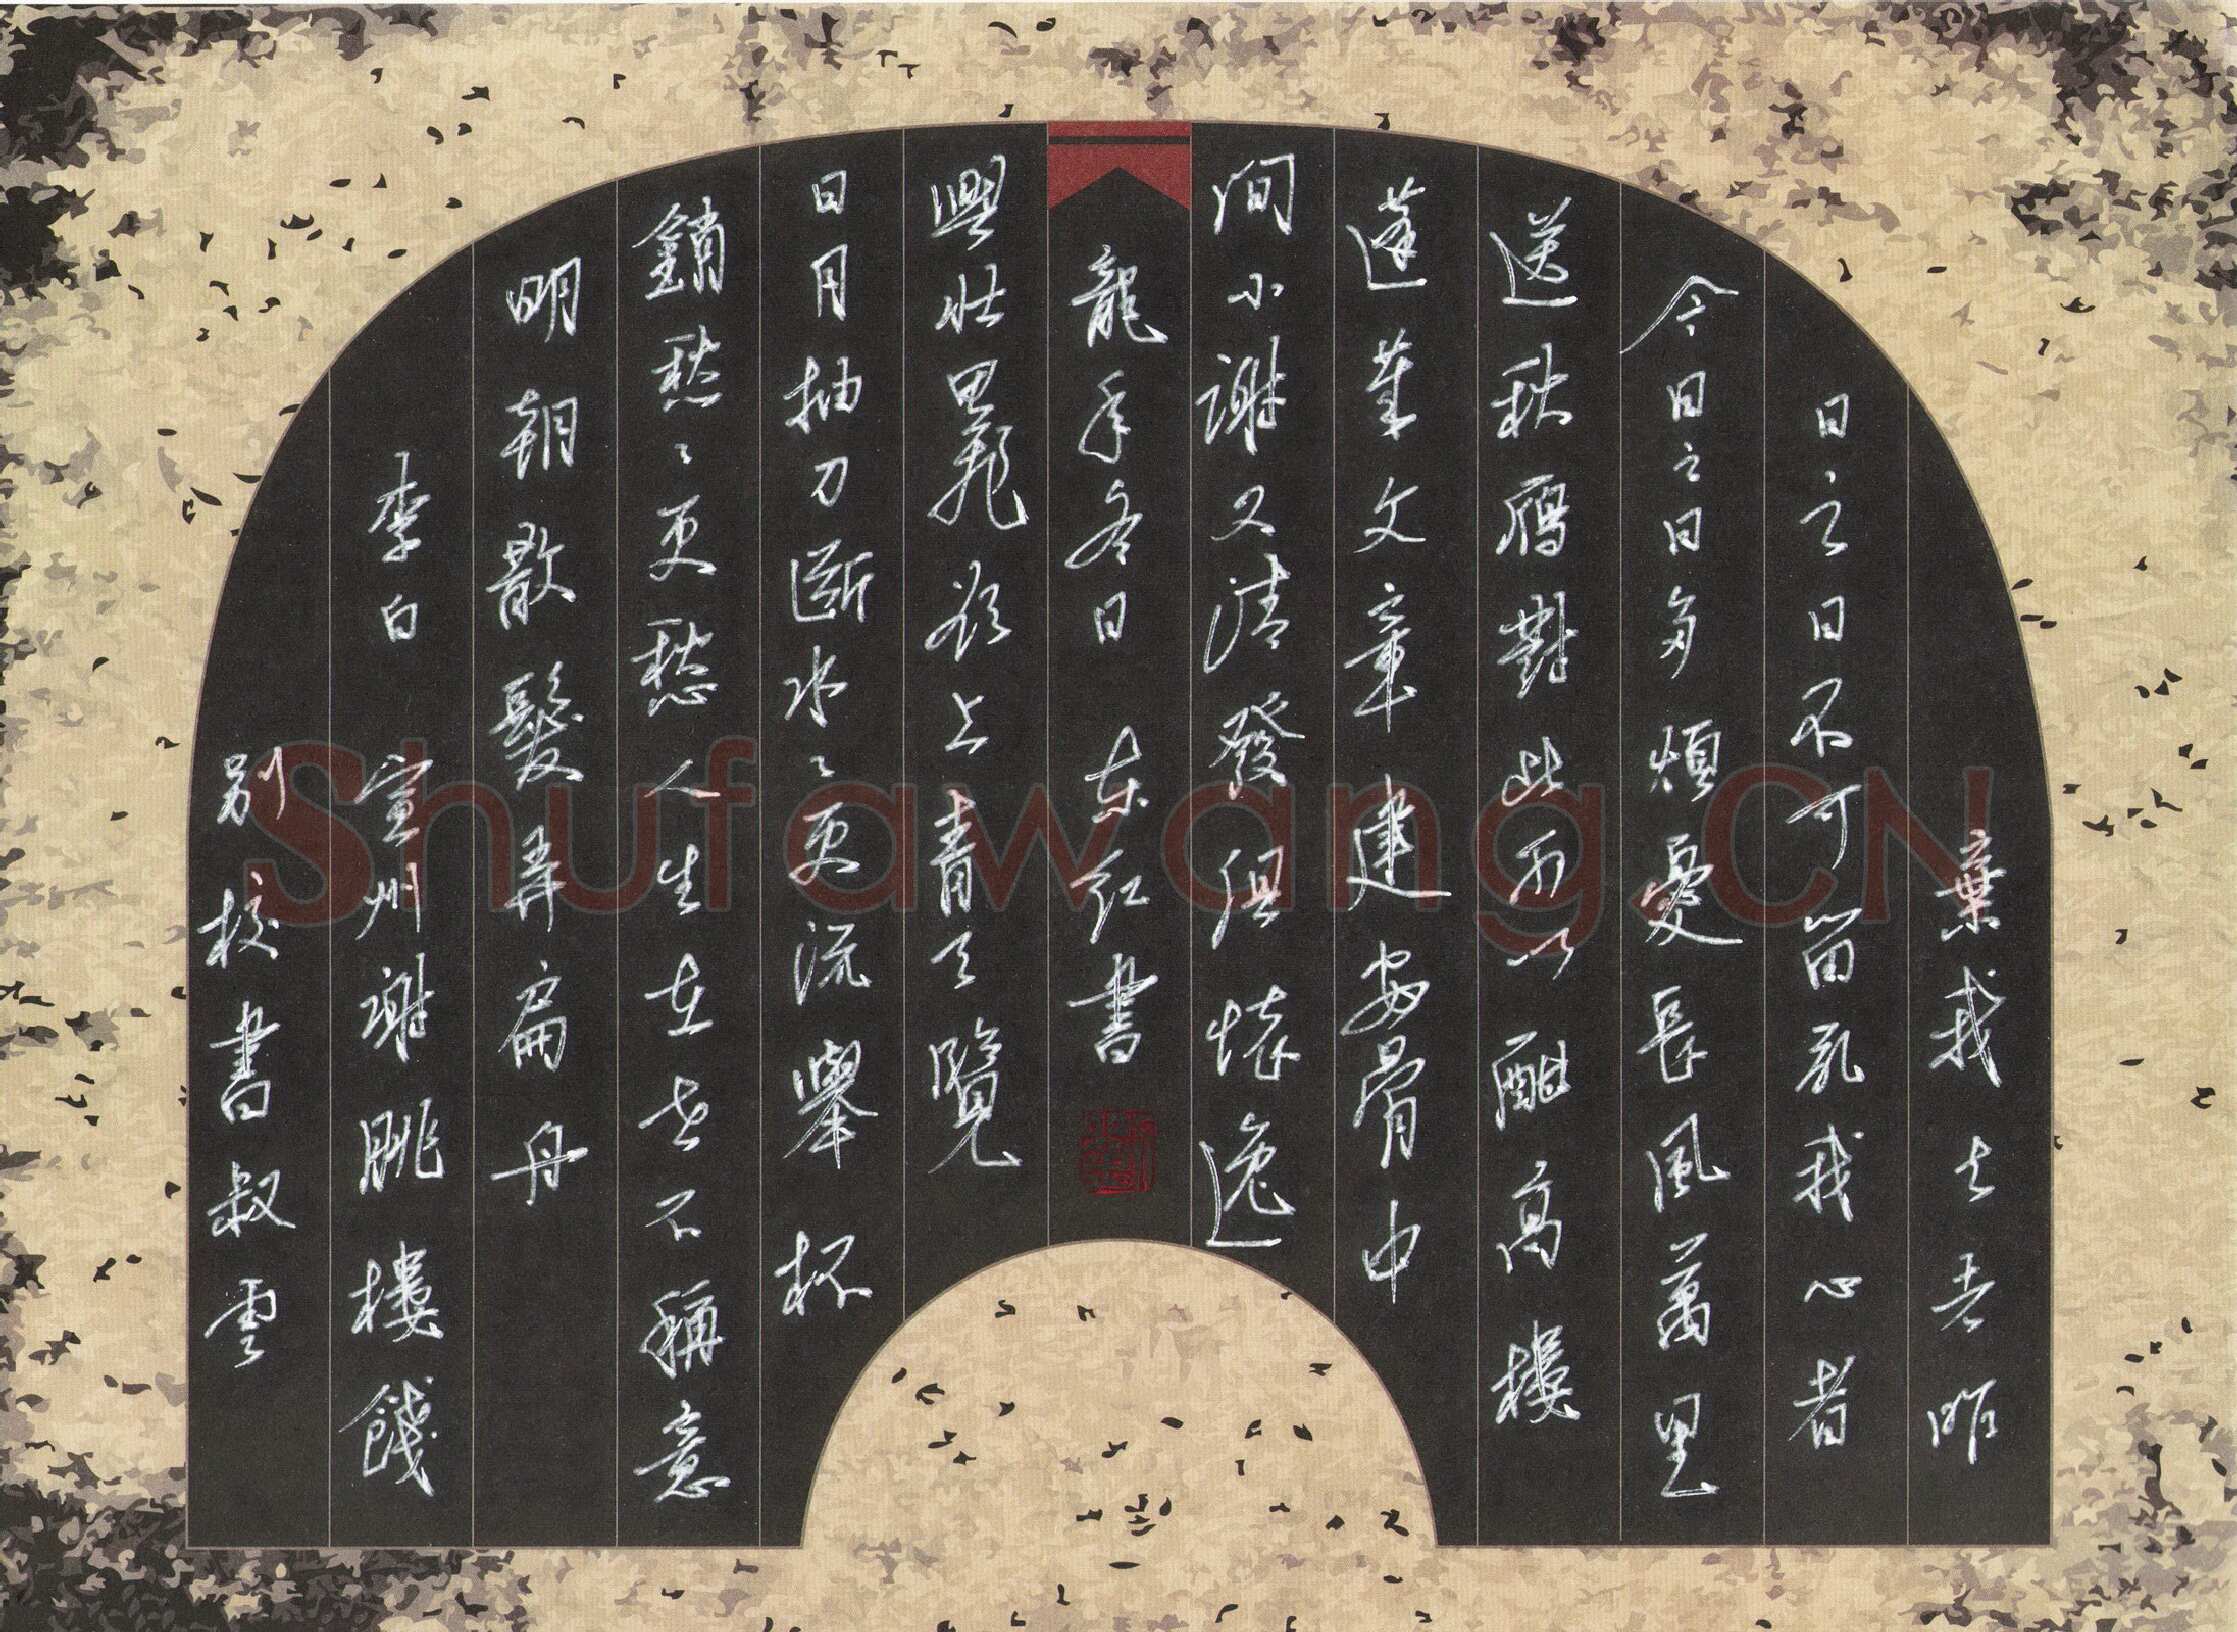 棄我去者昨
日之日不可留亂我心者
今日之日多煩憂長風萬里
送秋鴈對此可以酣高樓
蓬萊文章建安骨中
間小謝又清發俱懷逸
龍年冬日 东红書
興壯思飛欲上青天覽
日月抽刀斷水〻更流舉杯
銷愁〻更愁人生在世不稱意
明朝散髮弄扁舟
李白 宣州謝朓樓餞
別校書叔雲
Shufawang.CN